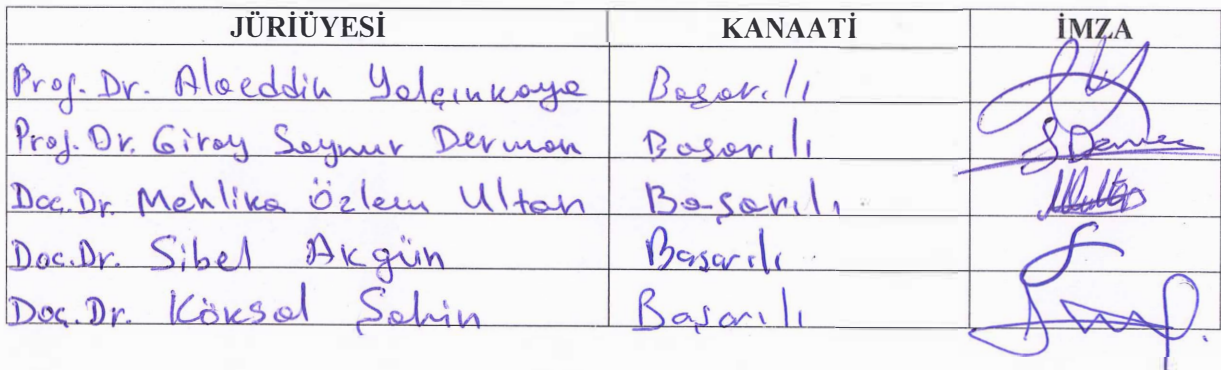 JÜRİÜYESİ KANAATİ İMZA
Prof. Dr. Alaeddin Yalçınkaya Başarılı
Prof. Dr. Giray Saynur Derman Başarılı
Doç. Dr. Mehlika Özlem Ultan Başarılı
Doç. Dr. Sibel Akgün Başarılı
Doç. Dr. Köksal Şahin Başarılı